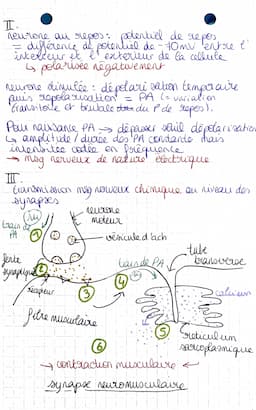 II.
neurone au repos : potentiel de repos
= différence de potentiel de -70mV entre l'
intérieur et l'extérieur de la cellule
↳ polarisée négativement
neurone stimulée : dépolarisation temporaire
puis repolarisation = PA (= variation
transitoire et brutale du P de repos).
Pour naissance PA → dépasser seuil dépolarisation
↳ amplitude / durée des PA constante mais
intensité codée en fréquence
→ msg nerveux de nature électrique
III.
transmission msg nerveux chimique au niveau des
synapses
train de PA
1
neurone moteur
vésicule d'ach
fente synaptique
2
récepteur
3
4
train de PA
tube transverse
calcium
fibre musculaire
5
réticulum sarcoplasmique
6
→ contraction musculaire ←
synapse neuromusculaire